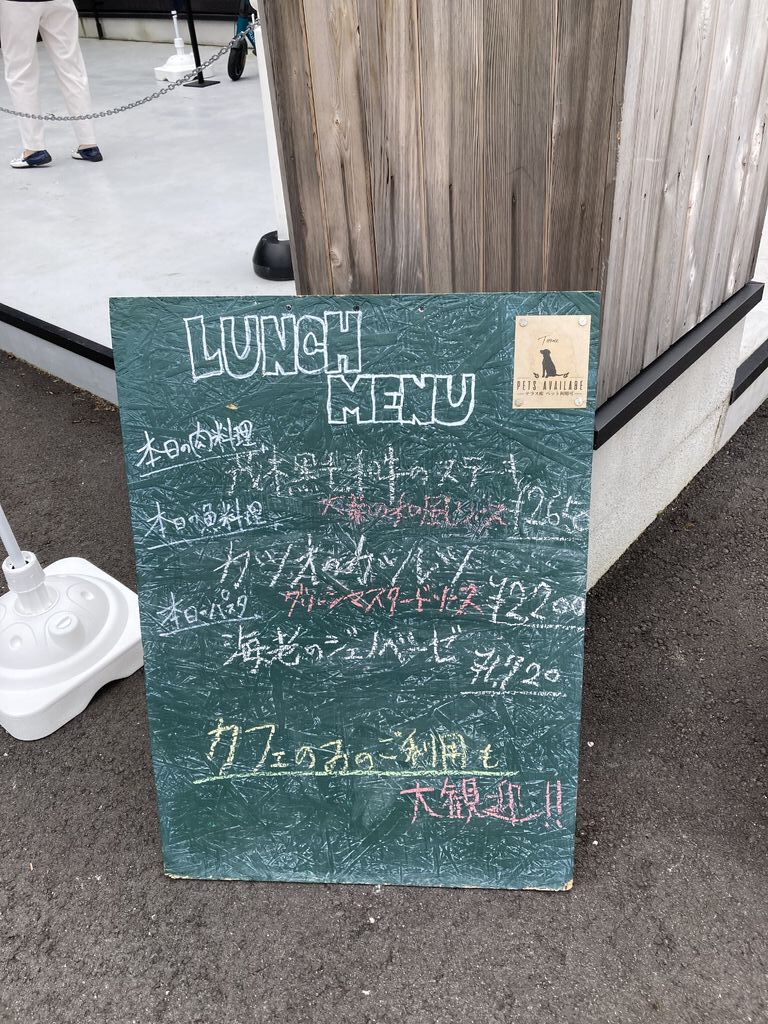 LUNCH
MENU
Terrace
PETS AVAILABE
テラス席 ペット利用可
本日の肉料理
黒毛和牛のステーキ
大葉の和風ソース
本日の魚料理
カツオのカツレツ
グリーンマスタードソース ¥2200
本日のパスタ
海老のジェノベーゼ
¥1,720
カフェのみのご利用も
大観迎!!